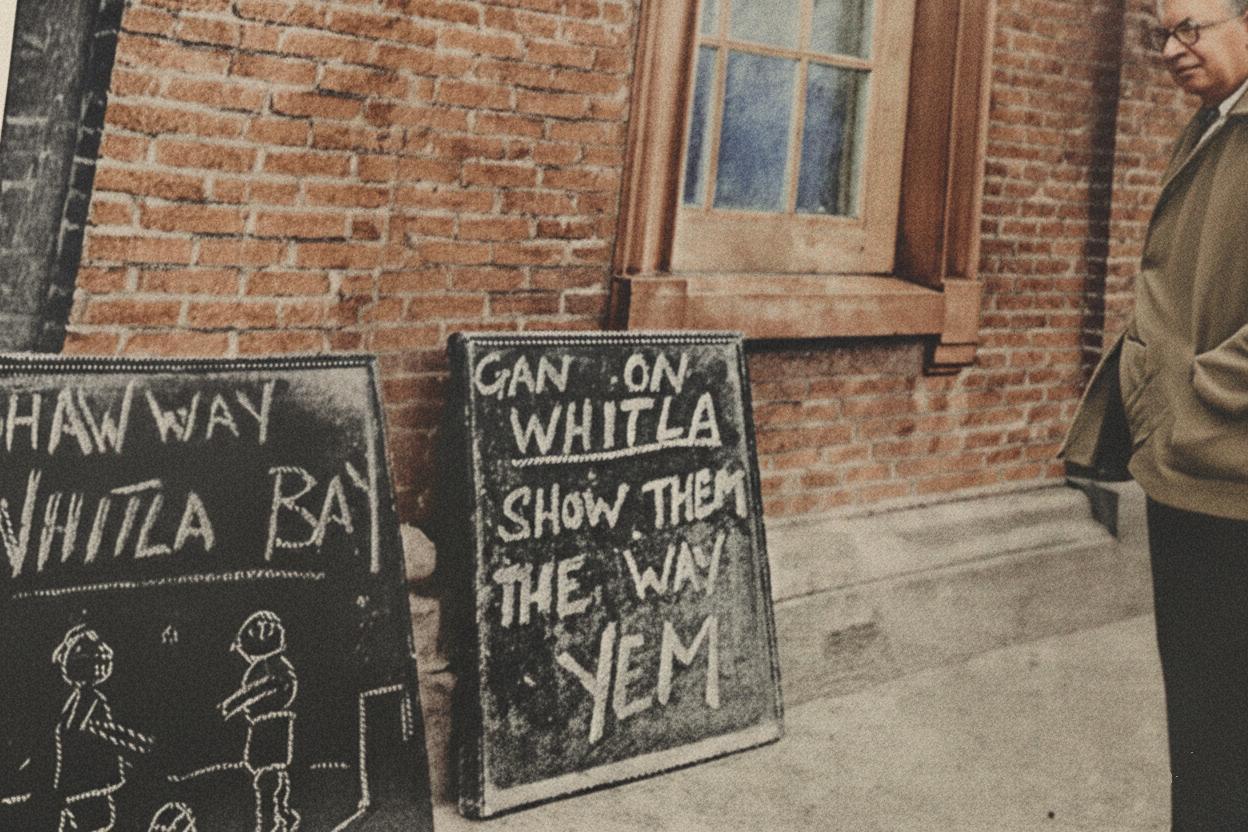 HAW WAY
WHITLA BAY
GAN ON
WHITLA
SHOW THEM
THE WAY
YEM